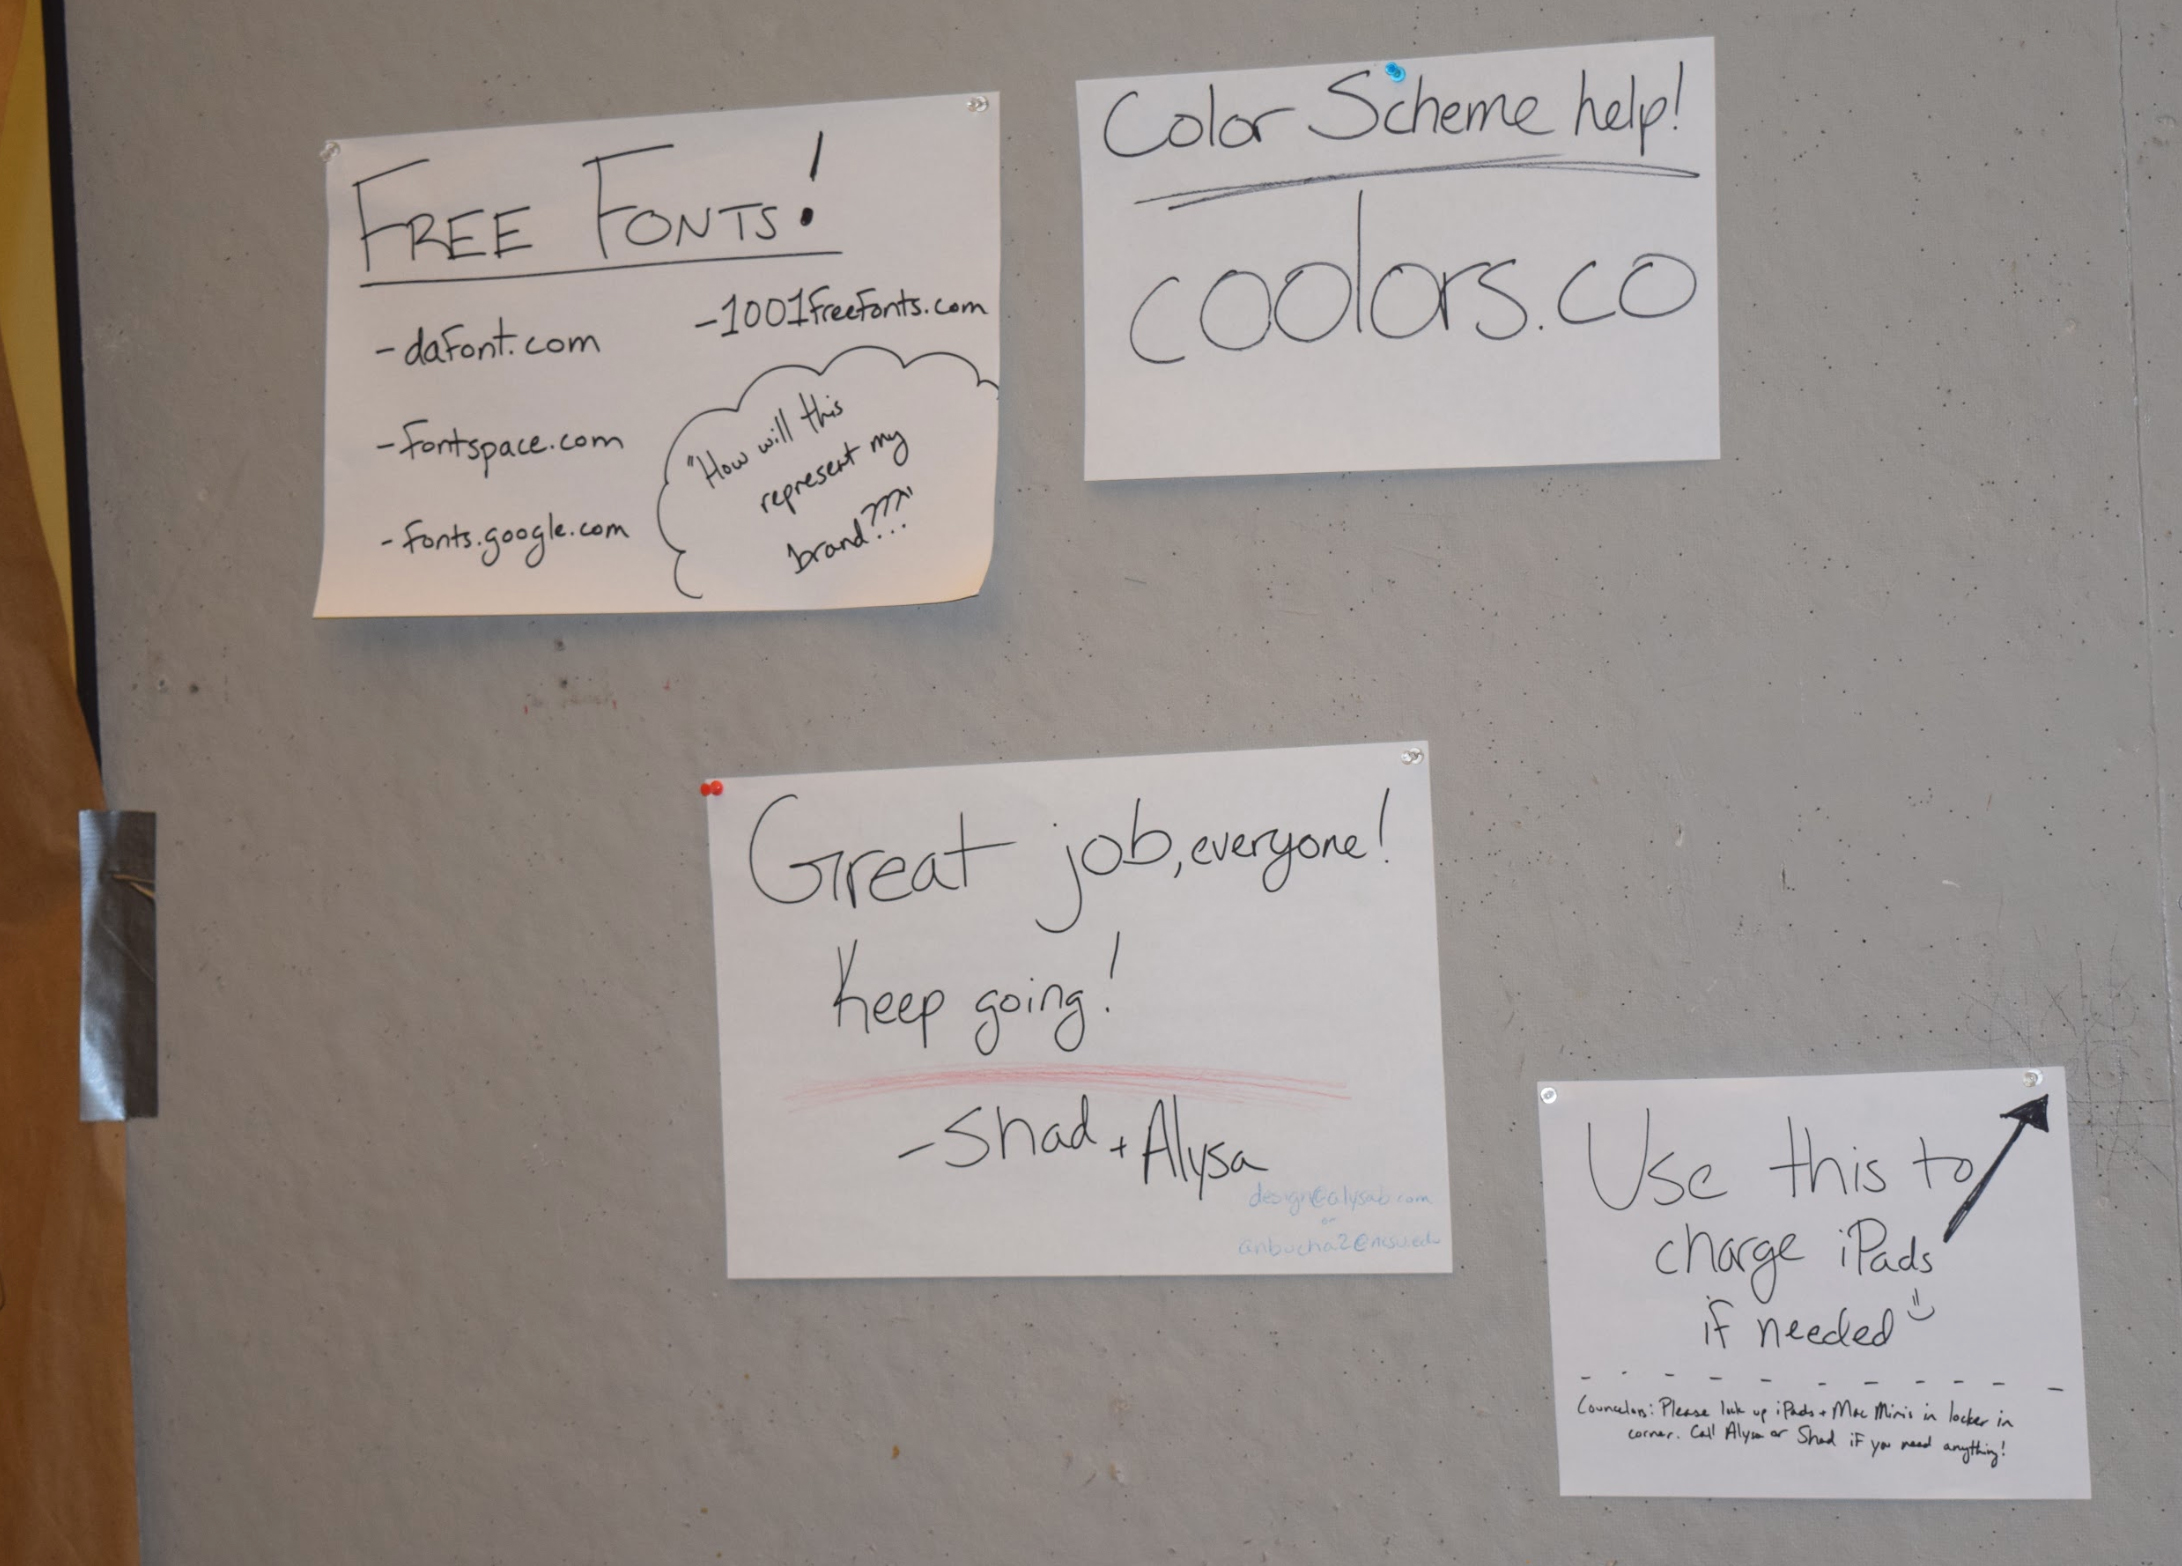 FREE FONTS!
- dafont.com
- fontspace.com
- fonts.google.com
- 1001freefonts.com
"How will this
represent my
brand???"
Color Scheme help!
coolors.co
Great job, everyone!
Keep going!
- Shad + Alysa
design@alysab.com
or
anbucha2@ncsu.edu
Use this to
charge iPads
if needed
Councelors: Please lock up iPads + Mac Minis in locker in
corner. Call Alysa or Shad if you need anything!